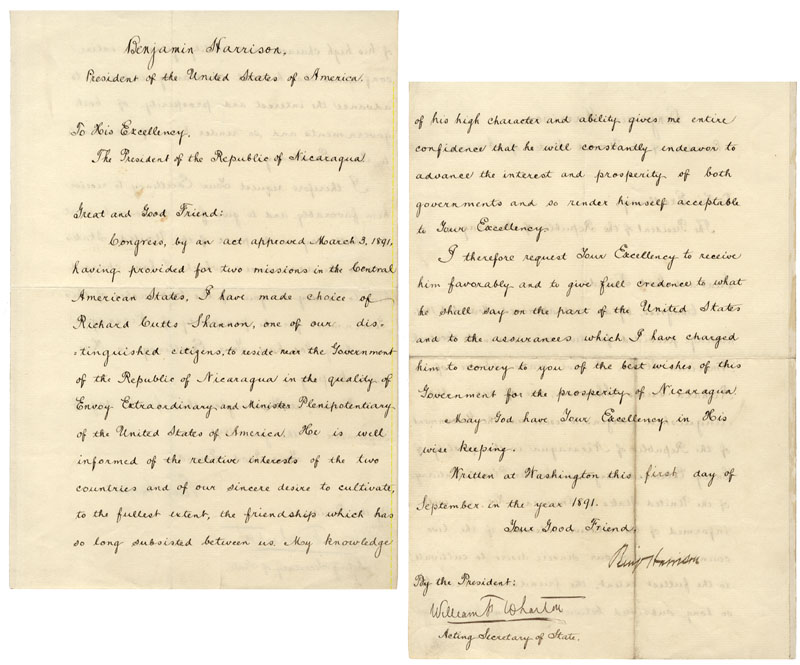 Benjamin Harrison,
President of the United States of America.
To His Excellency,
The President of the Republic of Nicaragua
Great and Good Friend:
Congress, by an act approved March 3, 1891,
having provided for two missions in the Central
American States, I have made choice of
Richard Cutts Shannon, one of our dis-
-tinguished citizens, to reside near the Government
of the Republic of Nicaragua in the quality of
Envoy Extraordinary and Minister Plenipotentiary
of the United States of America. He is well
informed of the relative interests of the two
countries and of our sincere desire to cultivate,
to the fullest extent, the friendship which has
so long subsisted between us. My knowledge
of his high character and ability gives me entire
confidence that he will constantly endeavor to
advance the interest and prosperity of both
governments and so render himself acceptable
to Your Excellency.
I therefore request Your Excellency to receive
him favorably and to give full credence to what
he shall say on the part of the United States
and to the assurances which I have charged
him to convey to you of the best wishes of this
Government for the prosperity of Nicaragua.
May God have Your Excellency in His
wise keeping.
Written at Washington this first day of
September in the year 1891.
Your Good Friend,
Benj Harrison
By the President:
William F Wharton
Acting Secretary of State.